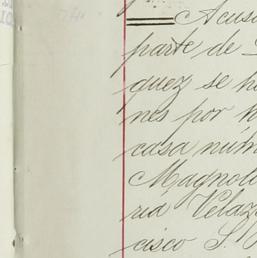 Acusa
parte de
quez se h
nes por
casa núm
Magnol
ria Velaz
cisco S.